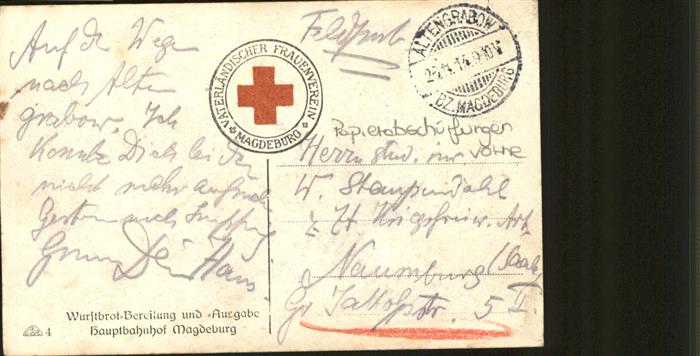 Auf dem Wege
nach Alten
grabow. Ich
konnte Dich bei Dir
nicht mehr aufsuch
Gestern noch
Dein Hans.
Feldpost
VATERLÄNDISCHER FRAUENVEREIN
MAGDEBURG
ALTENGRABOW
14.9-10V
BZ. MAGDEBURG
Papierabschürfungen
vorne
Herrn stud. jur.
W.
z. Zt. Kriegsfreiw. Art.
Naumburg (Saale)
Gr. Jakobstr. 5 II.
Wurstbrot-Bereitung und -Ausgabe
Hauptbahnhof Magdeburg
4